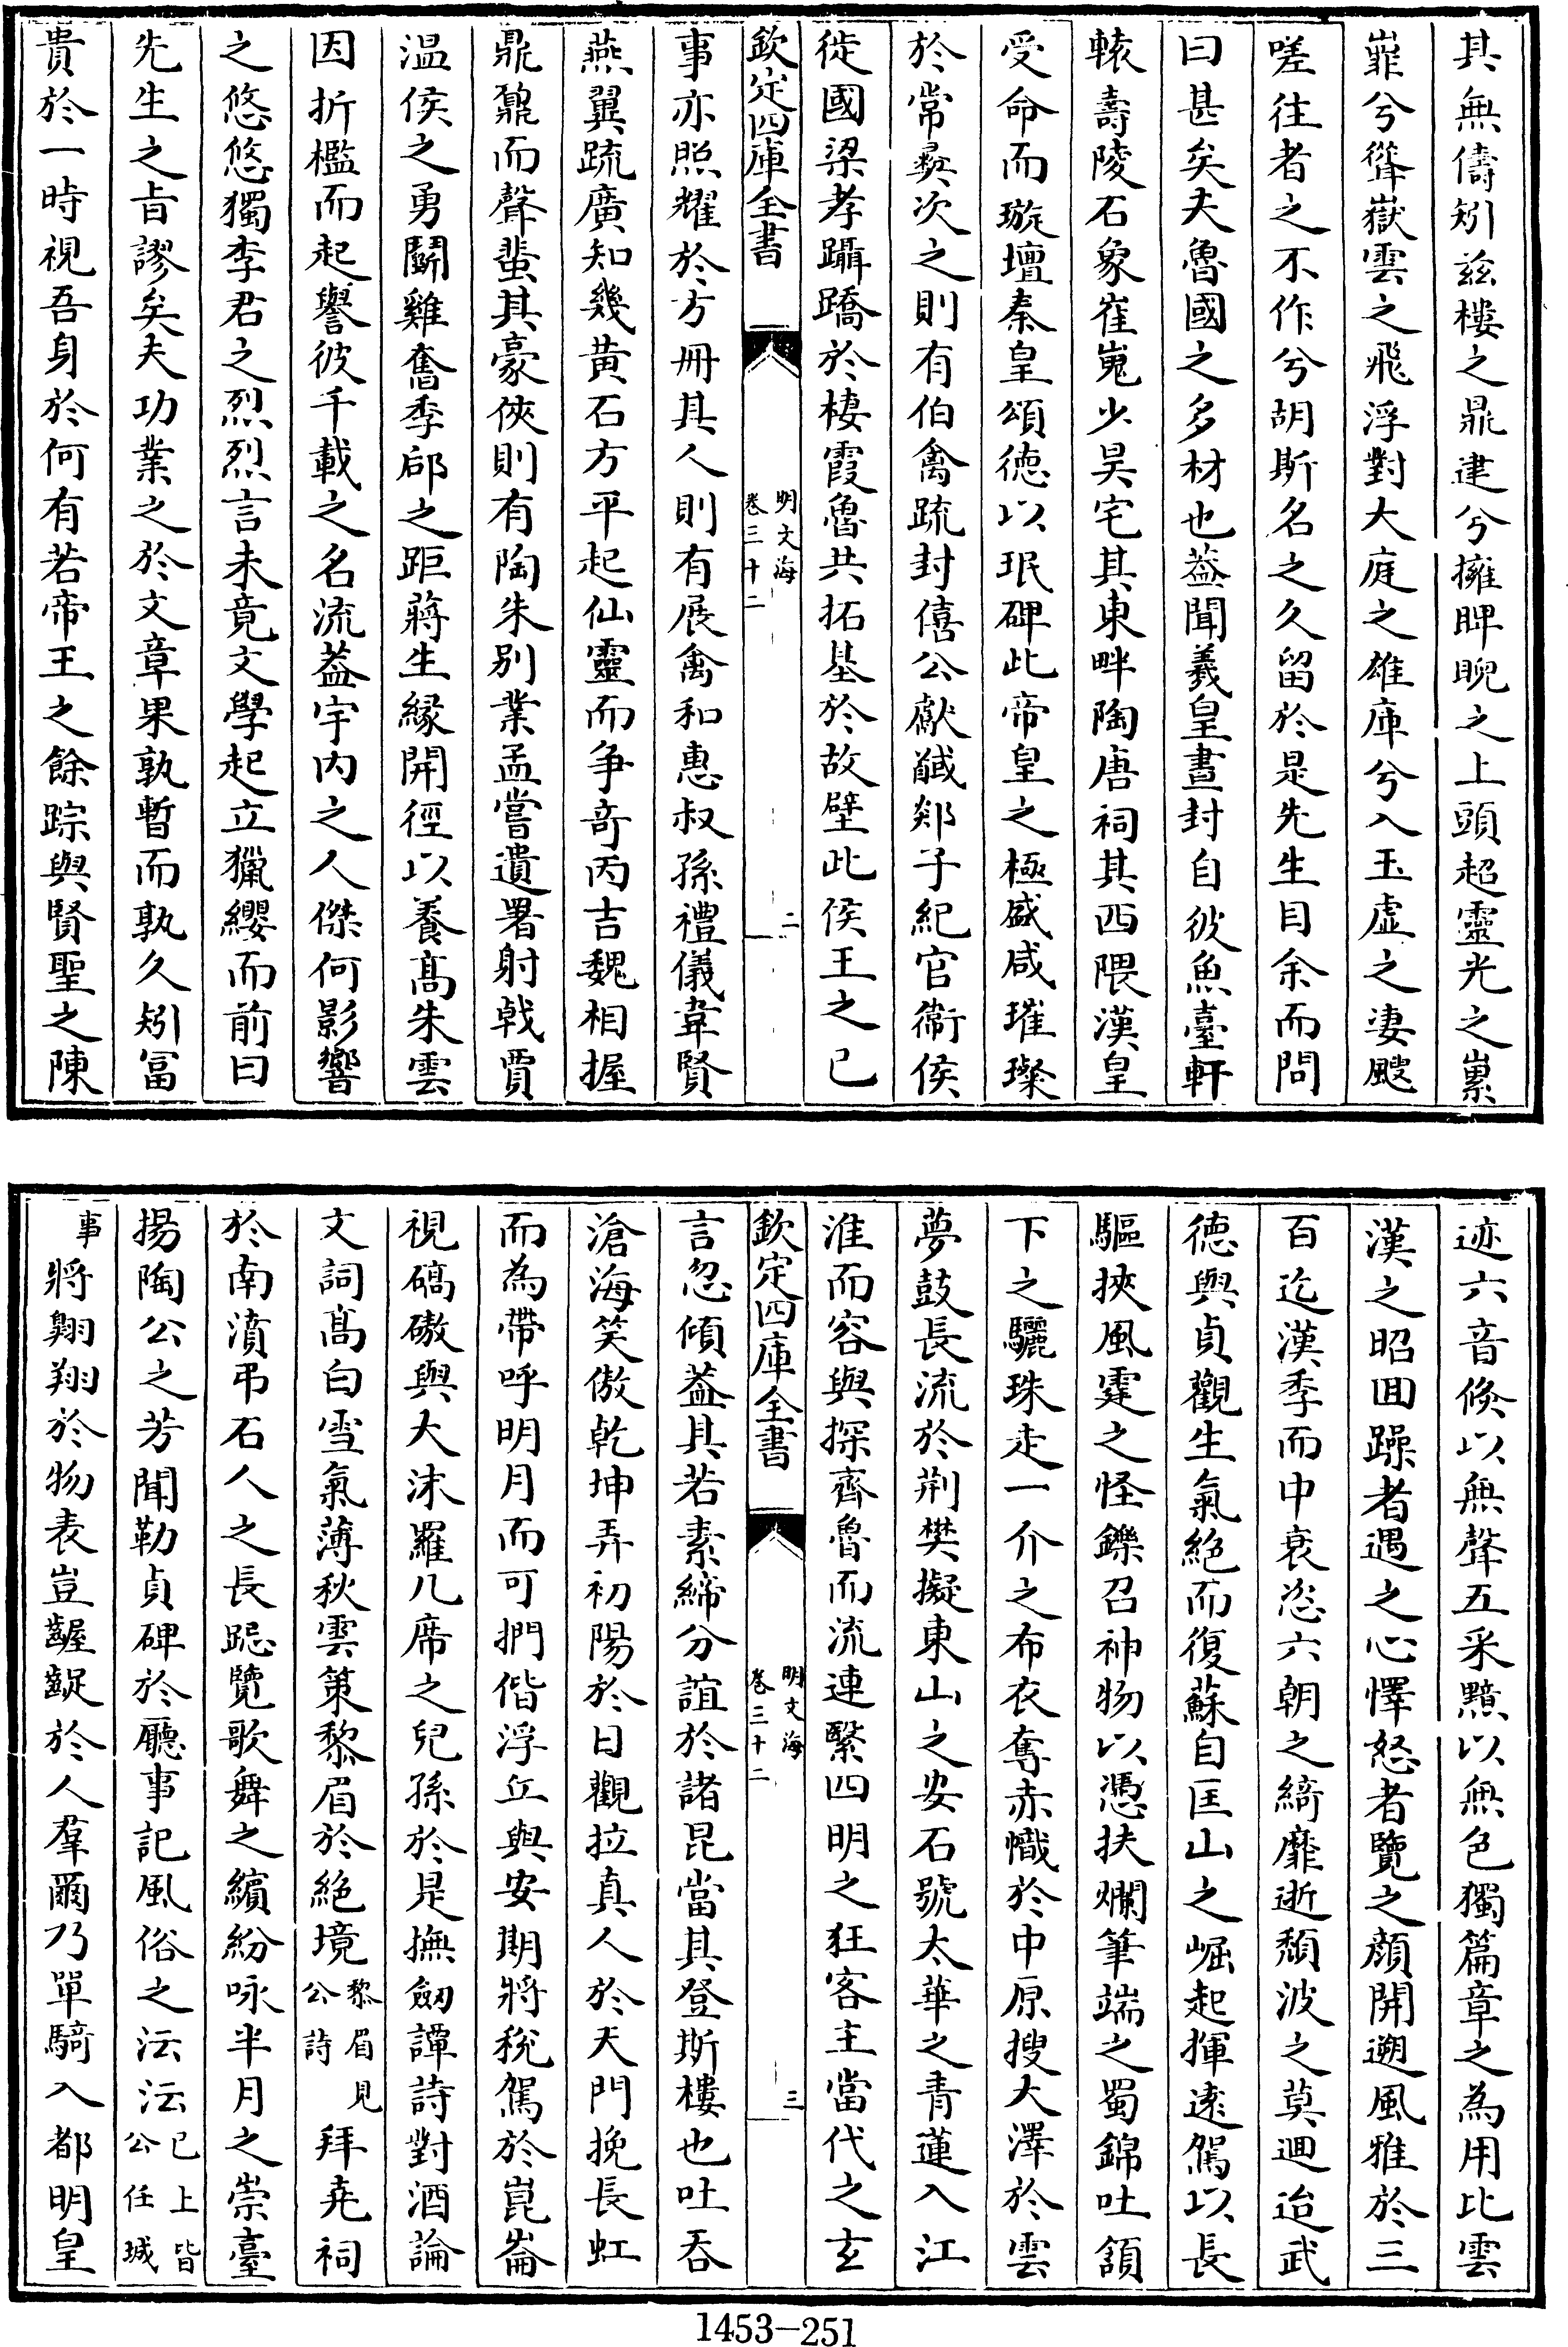 其無儔矧兹樓之鼎建兮擁睥睨之上頭超靈光之崇
嶵兮聳嶽雲之飛浮對大庭之雄庫兮入玉虛之凄颼
嗟往者之不作兮胡斯名之久留於是先生目余而問
曰甚矣夫魯國之多材也葢聞羲皇畫封自彼魚臺軒
轅壽陵石象崔嵬少昊宅其東畔陶唐祠其西隈漢皇
受命而璇壇秦皇頌德以珉碑此帝皇之極盛咸璀璨
於常彞次之則有伯禽疏封僖公獻馘郯子紀官衞侯
徙國梁孝躡蹻於棲霞魯共拓基於故壁此侯王之已
欽定四庫全書
明文海
卷三十二
二
事亦照耀於方冊其人則有展禽和惠叔孫禮儀韋賢
燕翼疏廣知幾黄石方平起仙靈而争奇丙吉魏相握
鼎鼐而聲蜚其豪俠則有陶朱别業孟嘗遺署射戟賈
温侯之勇鬭雞奮季郈之距蔣生緣開徑以養髙朱雲
因折檻而起譽彼千載之名流葢宇内之人傑何影響
之悠悠獨李君之烈烈言未竟文學起立獵纓而前曰
先生之旨謬矣夫功業之於文章果孰暫而孰久矧冨
貴於一時視吾身於何有若帝王之餘踪與賢聖之陳
迹六音倐以無聲五采黯以無色獨篇章之為用比雲
漢之昭回躁者遇之心懌怒者覽之顔開遡風雅於三
百迄漢季而中衰恣六朝之綺靡逝頽波之莫廻迨武
德與貞觀生氣絶而復蘇自匡山之崛起揮遠駕以長
驅挾風霆之怪鑠召神物以憑扶爛筆端之蜀錦吐頷
下之驪珠走一介之布衣奪赤幟於中原搜大澤於雲
夢鼓長流於荆樊擬東山之安石號太華之青蓮入江
淮而容與探齊魯而流連繄四明之狂客主當代之玄
欽定四庫全書
明文海
卷三十二
三
言忽傾葢其若素締分誼於諸昆當其登斯樓也吐吞
滄海笑傲乾坤弄初陽於日觀拉真人於天門挽長虹
而為帶呼明月而可捫偕浮丘與安期將稅駕於崑崙
視碻磝與大沫羅几席之兒孫於是撫劒譚詩對酒論
文詞髙白雪氣薄秋雲策黎眉於絶境黎眉見公詩拜堯祠
於南濆弔石人之長跽覽歌舞之繽紛咏半月之崇臺
揚陶公之芳聞勒貞碑於廳事記風俗之沄沄已上皆公任城
事將翺翔於物表豈齷齪於人羣爾乃單騎入都明皇
1453-251